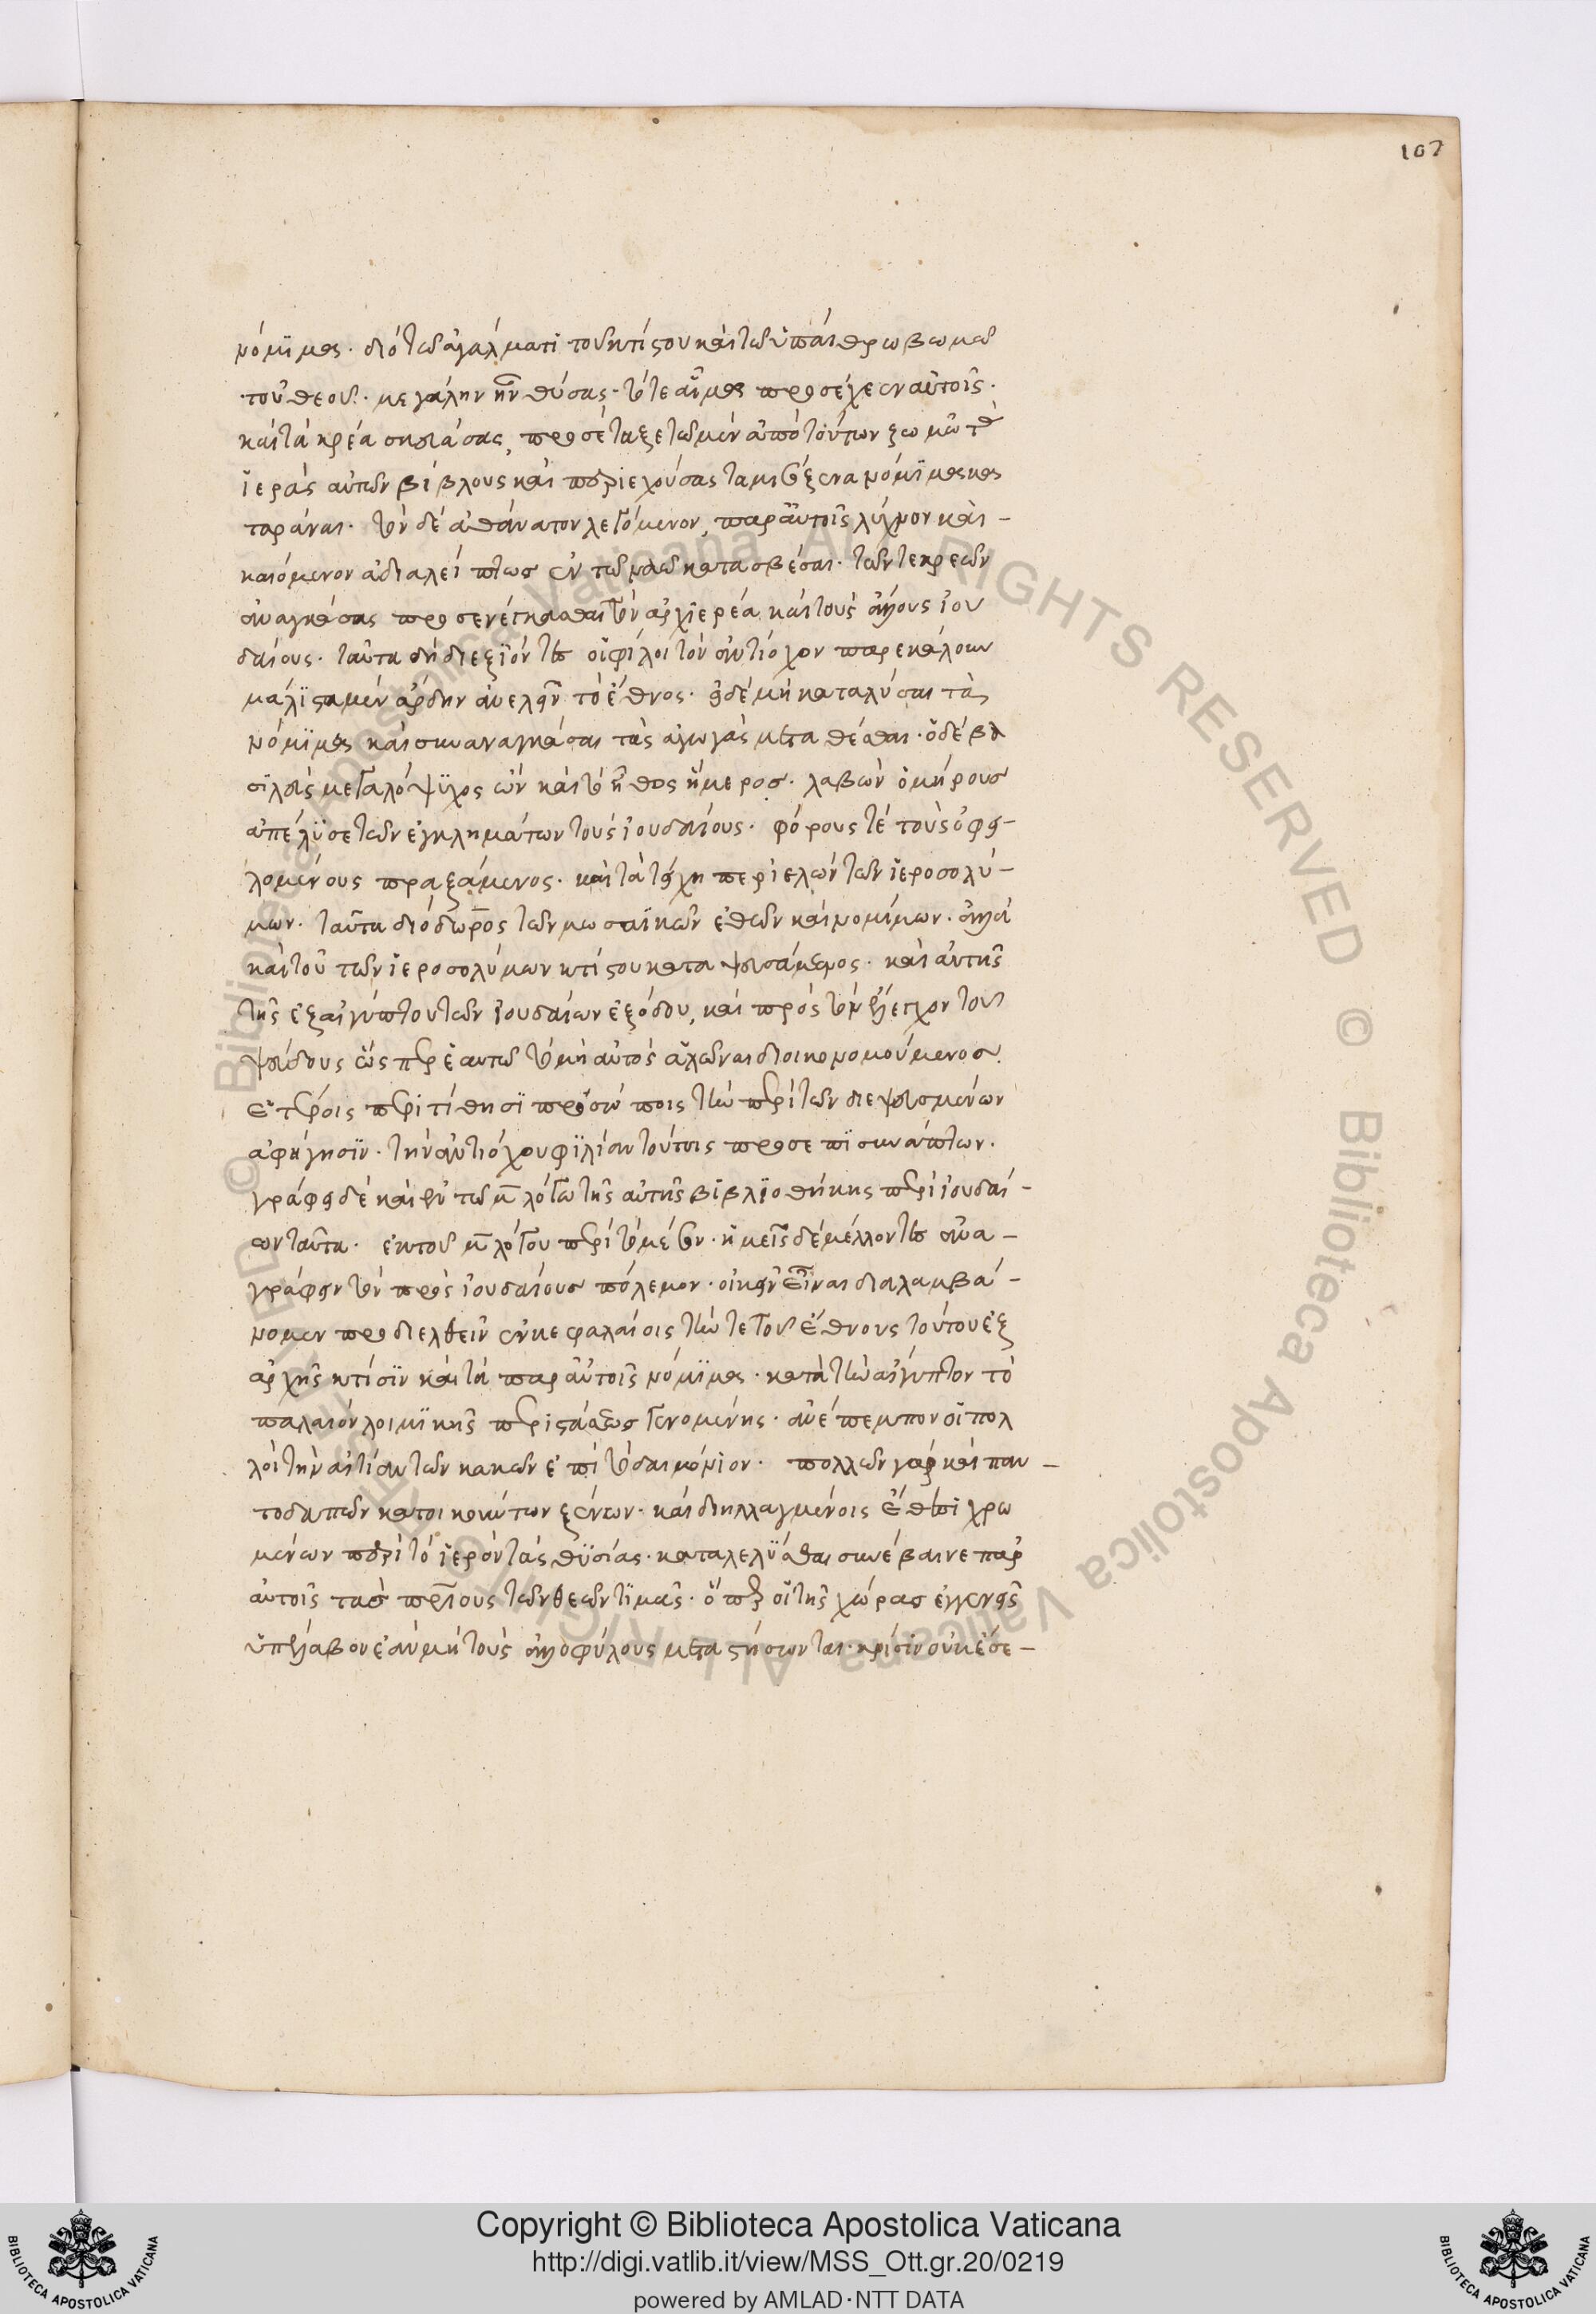 107
νόμιμα. διὸ τῶ ἀγάλματι τοῦ κτίστου καὶ τῶ ὑπαίθρω βωμῶ
τοῦ θεοῦ. μεγάλην ὗν θύσας. τό τε αἷμα προσέχεεν αὐτοῖς.
καὶ τὰ κρέα σκευάσας, προσέταξε τῶ μὲν ἀπὸ τούτων ζωμῶ τὰς
ἱερὰς αὐτῶν βίβλους καὶ περιεχούσας τὰ μισόξενα νόμιμα κα
ταρᾶναι. τὸν δὲ ἀθάνατον λεγόμενον, παρ' αὐτοῖς λύχνον καὶ -
καιόμενον ἀδιαλείπτως ἐν τῶ ναῶ κατασβέσαι. τῶν τε κρεῶν
ἀναγκάσας προσενέγκασθαι τὸν ἀρχιερέα καὶ τοὺς ἄλλους ἰου
δαίους. ταῦτα δὴ διεξιόντες οἱ φίλοι τὸν ἀντίοχον παρεκάλουν
μάλιστα μὲν ἄρδην ἀνελεῖν τὸ ἔθνος. εἰ δὲ μὴ καταλύσαι τὰ
νόμιμα καὶ συναναγκάσαι τὰς ἀγωγὰς μεταθέσθαι. ὁ δὲ βα
σιλεὺς μεγαλόψυχος ὢν καὶ τὸ ἦθος ἥμερος. λαβὼν ὁμήρους
ἀπέλυσε τῶν ἐγκλημάτων τοὺς ἰουδαίους. φόρους τὲ τοὺς ὀφει-
λομένους πραξάμενος. καὶ τὰ τείχη περιελὼν τῶν ἱεροσολύ-
μων. ταῦτα διόδωρος τῶν μωσαϊκῶν ἐθῶν καὶ νομίμων. ἀλλὰ
καὶ τοῦ τῶν ἱεροσολύμων κτίστου καταψευσάμενος. καὶ αὐτῆς
τῆς ἐξ αἰγύπτου τῶν ἰουδαίων ἐξόδου, καὶ πρὸς τὸν ἔλεγχον τοῦ
ψεύδους ὥσπερ ἑαυτῶ τὸ μὴ αὐτὸς ἁλῶναι διοικονομούμενος.
ἑτέροις περιτίθησι προσώποις τὴν περὶ τῶν διεψευσμένων
ἀφήγησιν. τὴν ἀντιόχου φιλίαν τούτοις προσεπισυνάπτων.
γράφει δὲ καὶ ἐν τῶ μ λόγω τῆς αὐτῆς βιβλιοθήκης περὶ ἰουδαί-
ων ταῦτα. ἐκ τοῦ μ λόγου περὶ τὸ μέσον. ἡμεῖς δὲ μέλλοντες ἀνα-
γράφειν τὸν πρὸς ἰουδαίους πόλεμον. οἰκεῖον εἶναι διαλαμβά-
νομεν προδιελθεῖν ἐν κεφαλαίοις τήν τε τοῦ ἔθνους τούτου ἐξ
ἀρχῆς κτίσιν καὶ τὰ παρ' αὐτοῖς νόμιμα. κατὰ τὴν αἴγυπτον τὸ
παλαιὸν λοιμικῆς περιστάσεως γενομένης. ἀνέπεμπον οἱ πολ
λοὶ τὴν αἰτίαν τῶν κακῶν ἐπὶ τὸ δαιμόνιον. πολλῶν γὰρ καὶ παν-
τοδαπῶν κατοικούντων ξένων. καὶ διηλλαγμένοις ἔθεσι χρω
μένων περὶ τὸ ἱερὸν τὰς θυσίας. καταλελύσθαι συνέβαινε παρ'
αὐτοῖς τὰς πατρίους τῶν θεῶν τιμάς. ὅπερ οἱ τῆς χώρας ἐγγενεῖς
ὑπέλαβον ἐὰν μὴ τοὺς ἀλλοφύλους μεταστήσωνται. κρίσιν οὐκ ἔσε-
Copyright © Biblioteca Apostolica Vaticana
http://digi.vatlib.it/view/MSS_Ott.gr.20/0219
powered by AMLAD·NTT DATA